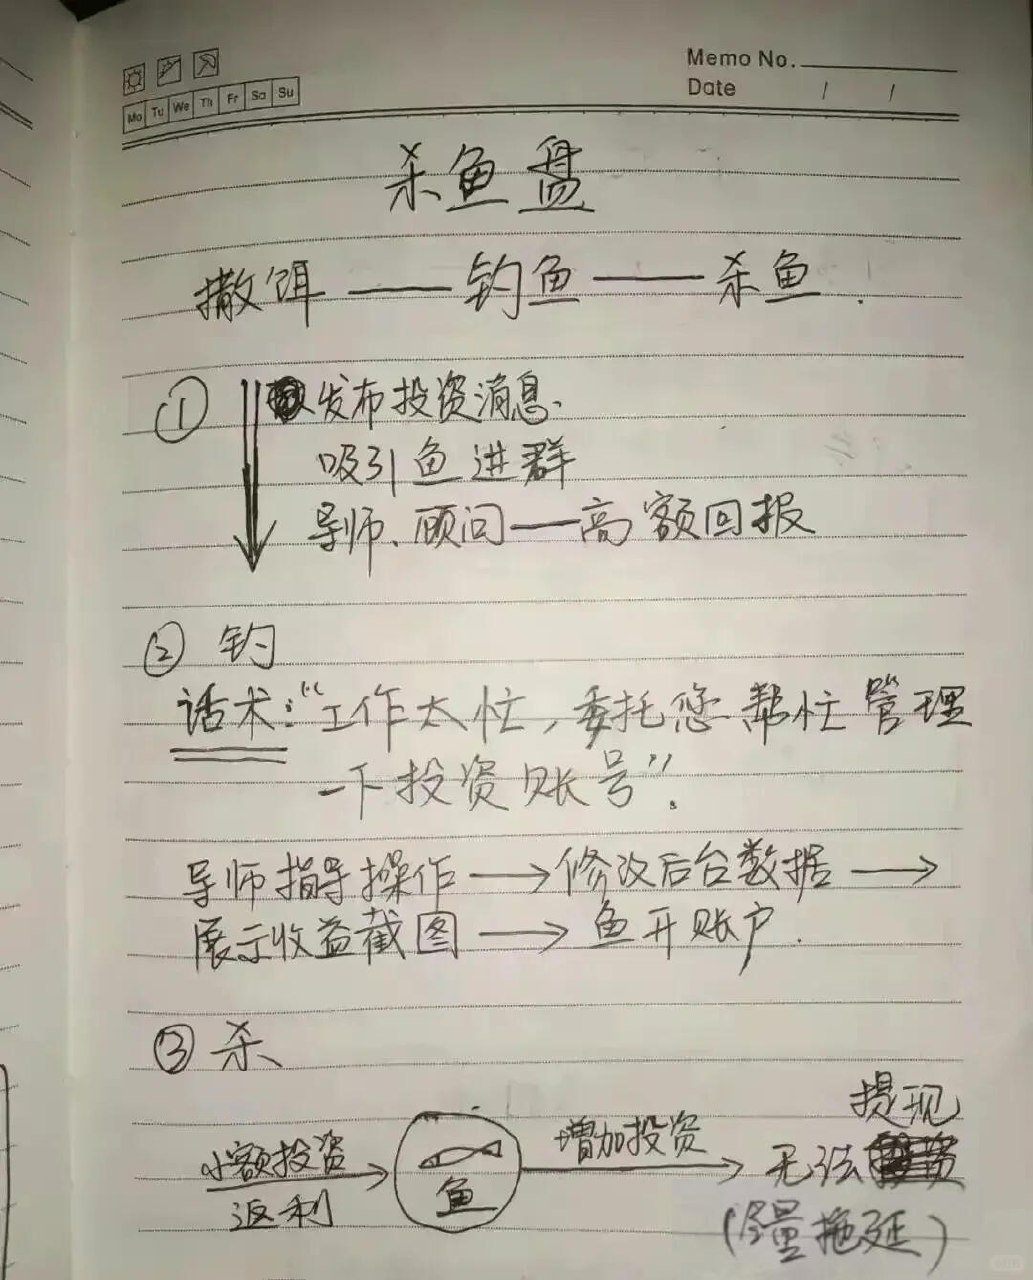 Memo No.
Mo Tu We Th Fr Sa Su
Date / /
杀鱼盘
撒饵——钓鱼——杀鱼.
① 发布投资消息.
吸引鱼进群
导师、顾问——高额回报
② 钓
话术:“工作太忙,委托您帮忙管理
一下投资账号”.
导师指导操作→修改后台数据→
展示收益截图→鱼开账户.
③ 杀
提现
小额投资 增加投资 无法
返利 鱼
(尽量拖延)